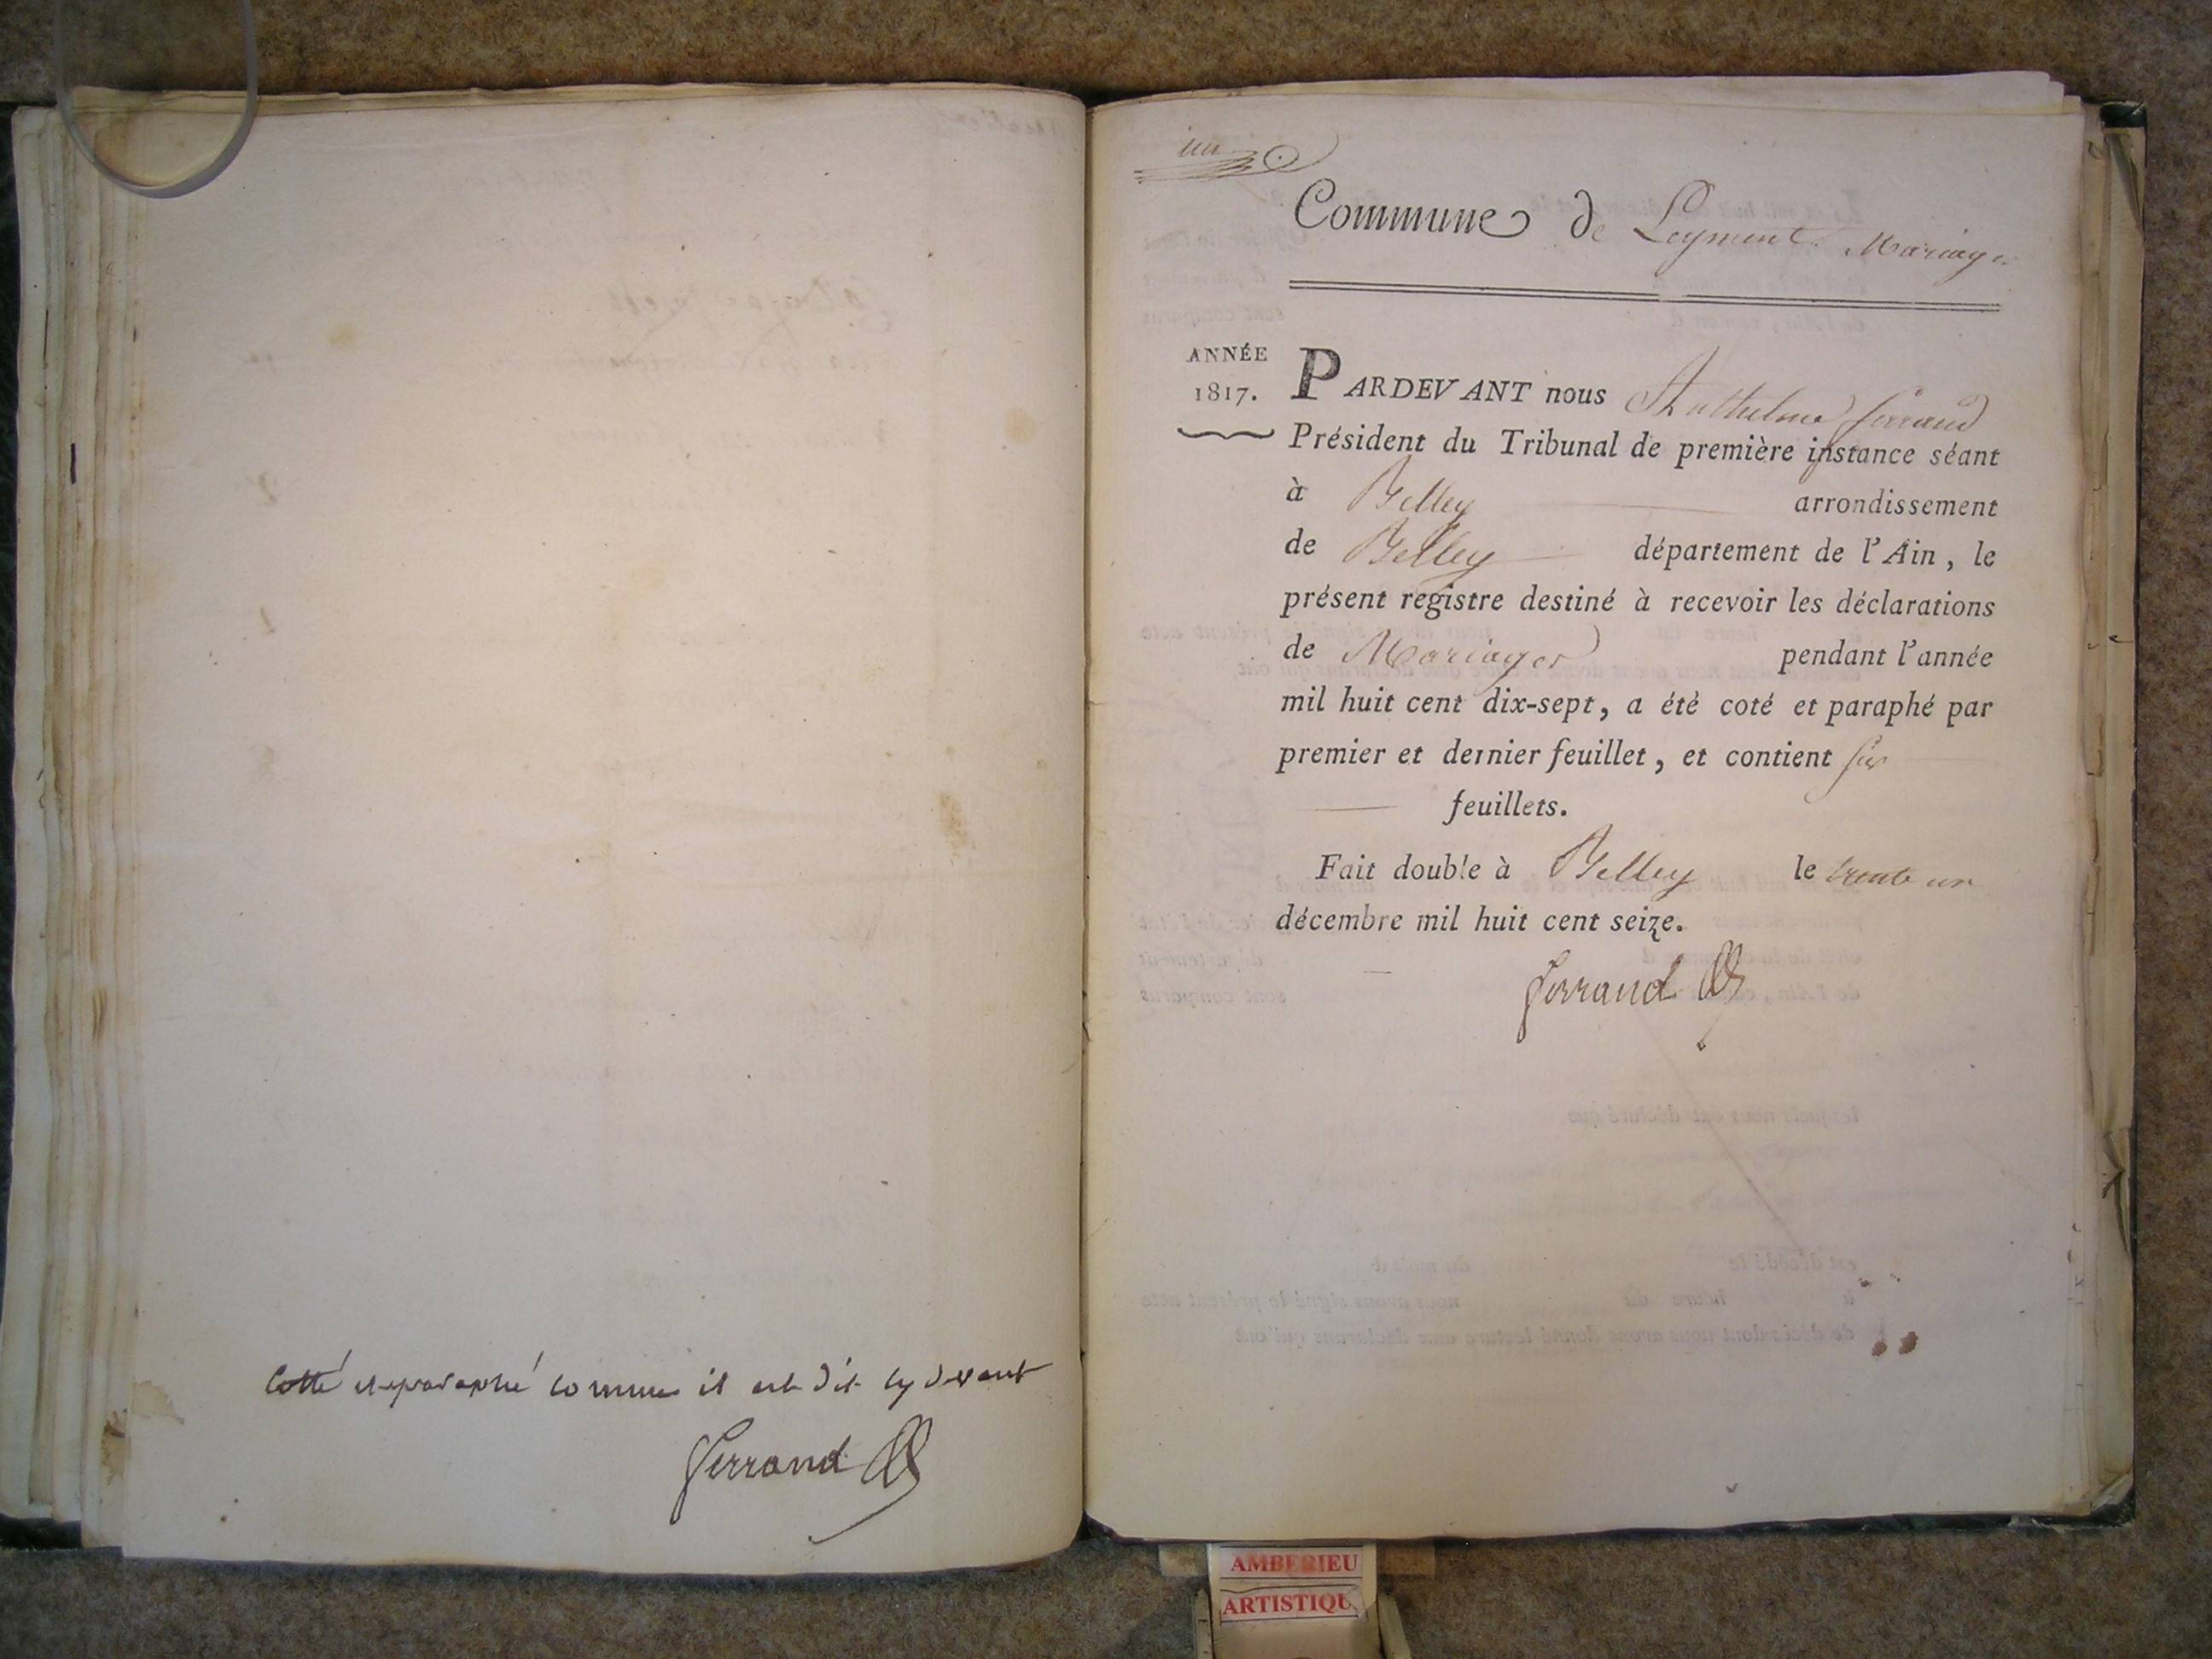 Cotté et paraphé comme il est dit cy devant
Ferrand
un
Commune de Leyment Mariages
ANNÉE
1817.
PARDEVANT nous Anthelme ferrand
Président du Tribunal de première instance séant
à Belley arrondissement
de Belley département de l'Ain, le
présent registre destiné à recevoir les déclarations
de Mariages pendant l'année
mil huit cent dix-sept, a été coté et paraphé par
premier et dernier feuillet, et contient six
feuillets.
Fait double à Belley le trente un
décembre mil huit cent seize.
Ferrand
AMBERIEU
ARTISTIQU